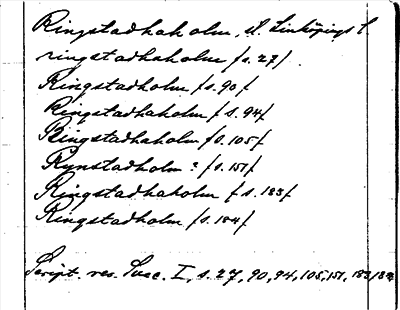 Ringstadhaholm, sl. Linköpings l.
ringstadhaholm /s. 27/.
Ringstadhaholm /s. 90/
Ringstadhaholm /s. 94/
Ringstadhaholm /s. 105/
Rynstadholm? /s. 151/
Ringstadhaholm /s. 183/
Ringstadholm /s. 184/
Script. rer. Suec. I, s. 27, 90, 94, 105, 151, 183/184